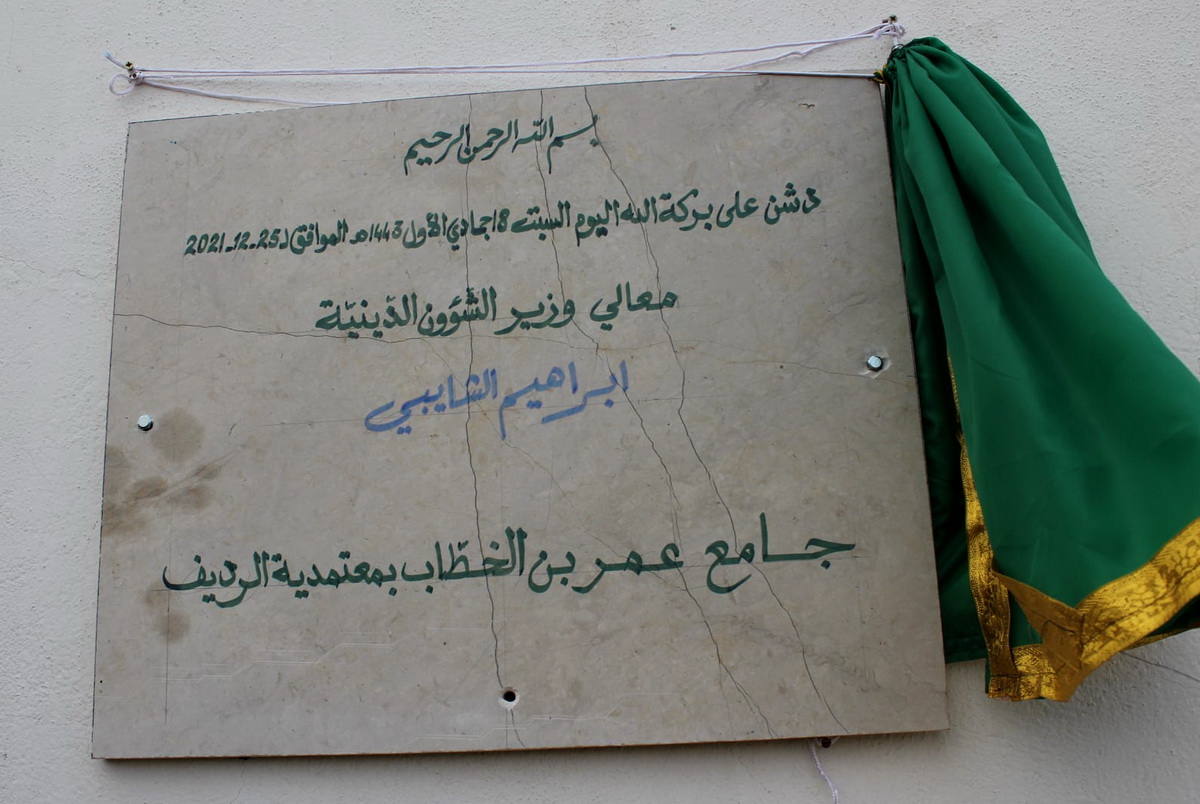 بسم الله الرحمن الرحيم
دشن على بركة الله اليوم السبت 18 جمادي الأول 1443هـ الموافق لـ 25-12-2021
معالي وزير الشَّؤون الدّينيّة
ابراهيم الشايبي
جامع عمر بن الخطّاب بمعتمدية الرديف